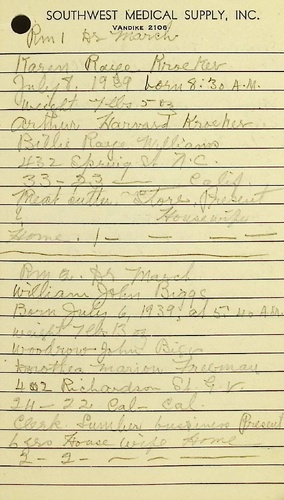 SOUTHWEST MEDICAL SUPPLY, INC.
VANDIKE 2106
Rm 1 Dr March
Karen Raye Kroeker
July 8, 1939 born 8:30 A.M.
weight 7 lbs 5 oz
Arthur Harvard Kroeker
Billie Raye Williams
432 Spring St N.C.
33 - 23 — Calif
Meat cutter Store, Present
Housewife
Home. 1 - — — —
Rm 2. Dr March
William John Biggs
Born July 6, 1939, at 5:40 A.M.
weight 7 lb 13 oz
Woodrow John Biggs
Dorothea Marion Freeman
402 Richardson St G V.
24 - 22 Cal - Cal.
Clerk Lumber business (Present
6 yrs House wife Home —
2 - 2 - — — — —